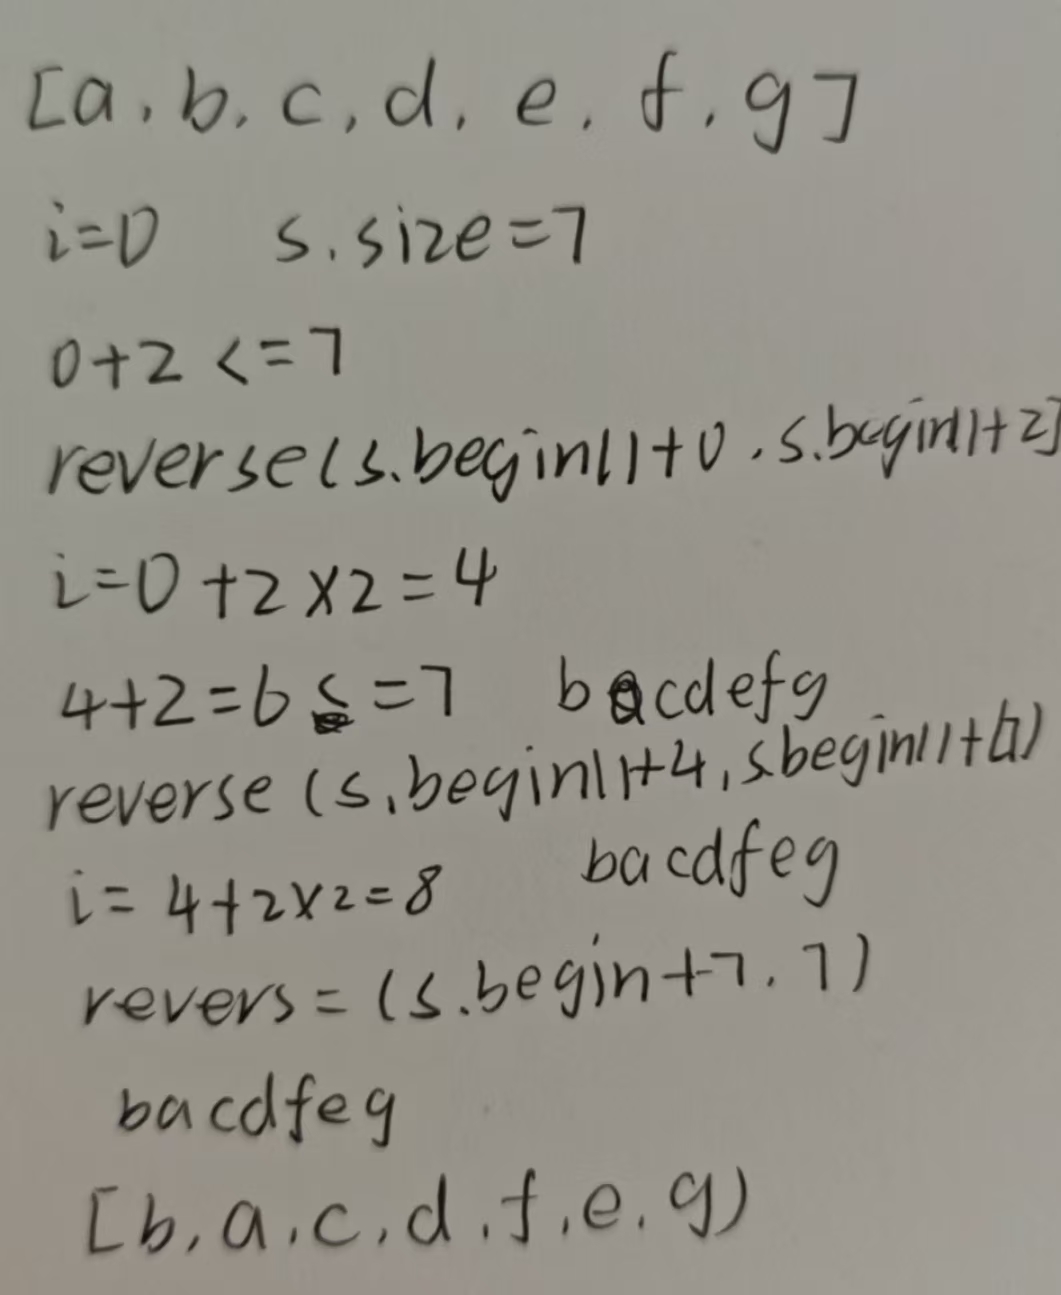 [a, b, c, d, e, f, g]
i=0 s.size=7
0+2 <=7
reverse(s.begin()+0, s.begin()+2)
i=0+2×2=4
4+2=6<=7 bacdefg
reverse (s.begin()+4, s.begin()+)
i=4+2×2=8 bacdfeg
revers=(s.begin+7, 7)
bacdfeg
[b, a, c, d, f, e, g)